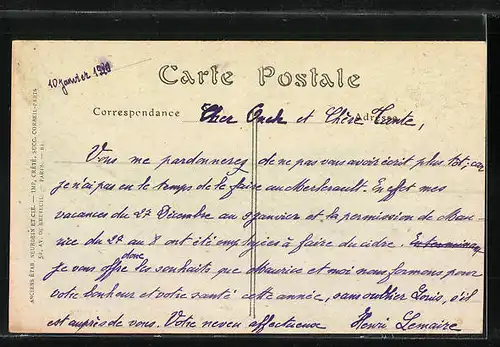 10 janvier 1920
Carte Postale
Correspondance Adresse
Cher Oncle et Chère Tante,
Vous me pardonnerez de ne pas vous avoir écrit plus tôt; car
je n'ai pas eu le temps de le faire au Merlerault. En effet mes
vacances du 27 Décembre au 9 janvier et la permission de Mau-
rice du 27 au 8 ont été employées à faire du cidre. En terminan
donc
je vous offre les souhaits que Maurice et moi nous formons pour
votre bonheur et votre santé cette année, sans oublier Louis, s'il
est auprès de vous. Votre neveu affectueux Henri Lemaire
ANCIENS ÉTAB. NEURDEIN ET CIE. — IMP. CRÉTÉ, SUCC. CORBEIL-PARIS
52, AV. DE BRETEUIL, PARIS.